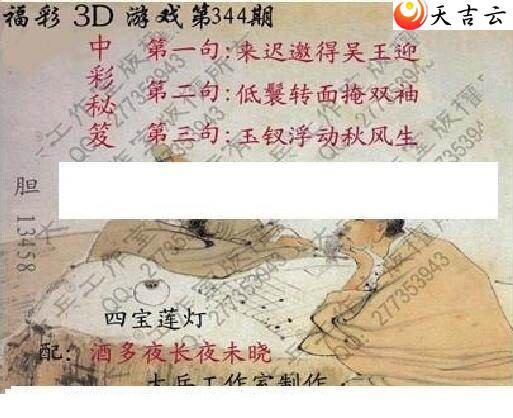 福彩 3D 游戏第344期
天吉云
中彩秘笈
第一句:来迟邀得吴王迎
第二句:低鬟转面掩双袖
第三句:玉钗浮动秋风生
胆 13458
四宝莲灯
配: 酒多夜长夜未晓
大兵工作室制作.
大兵工作室版权所有
QQ:277353943